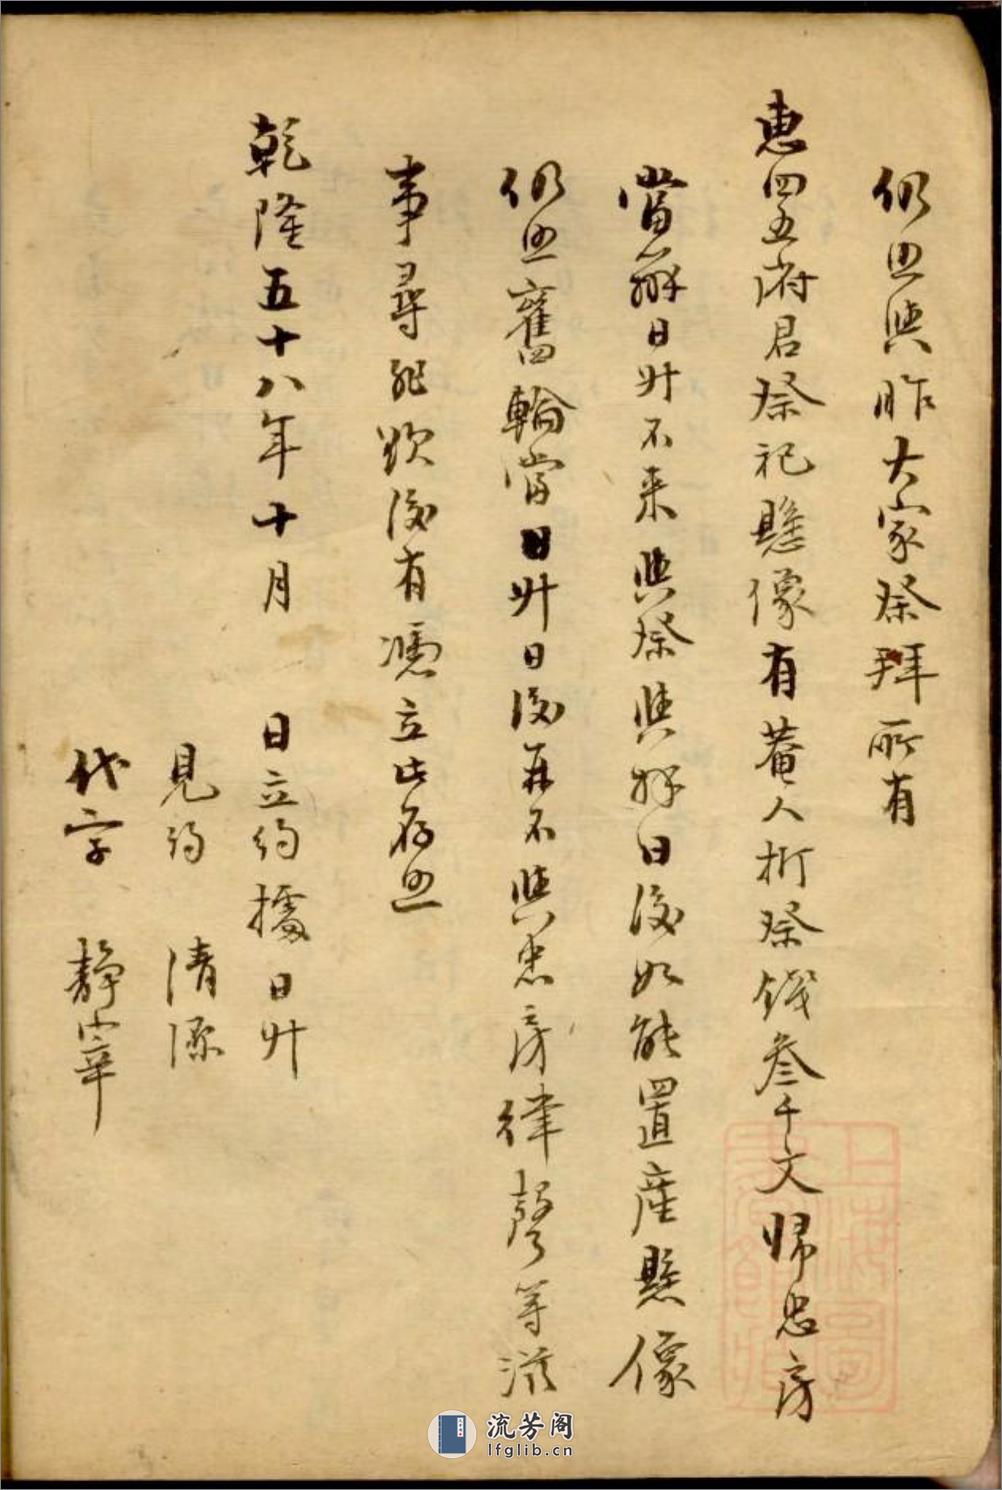 仍照與昨大家祭拜所有
惠四五府君祭祀懸像有菴人折祭錢叁千文歸忠房
當辦日升不來與祭與拜日後如能置產懸像
仍照舊輪當日升日後再不與忠房律聲等滋
事尋死欵後有憑立此存照
乾隆五十八年十月 日立約據日升
見約 清源
代字 靜寧
上海圖書館藏
流芳阁
lfglib.cn